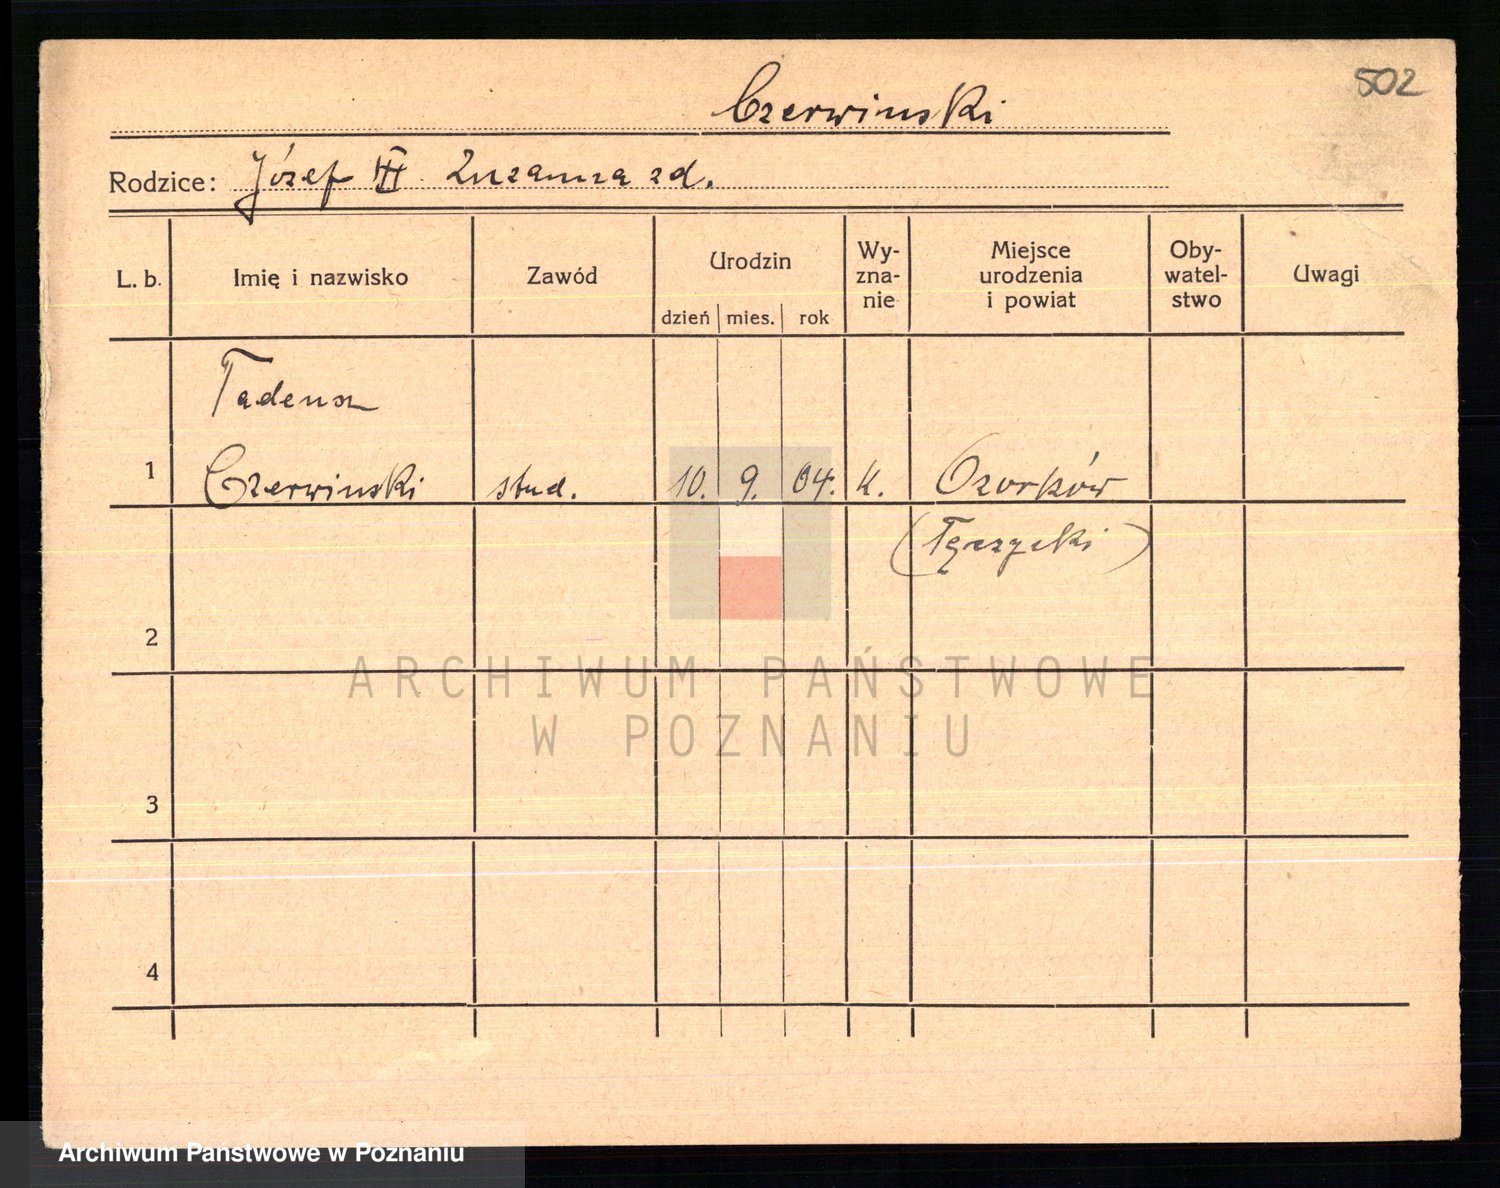 502
Czerwinski
Rodzice: Józef Zuzanna zd.
L. b. Imię i nazwisko Zawód Urodzin dzień mies. rok Wy-zna-nie Miejsce urodzenia i powiat Oby-watel-stwo Uwagi
Tadeusz
1 Czerwinski stud. 10. 9. 04. k. Ozorków
(Łęczycki)
2
3
4
ARCHIWUM PAŃSTWOWE
W POZNANIU
Archiwum Państwowe w Poznaniu